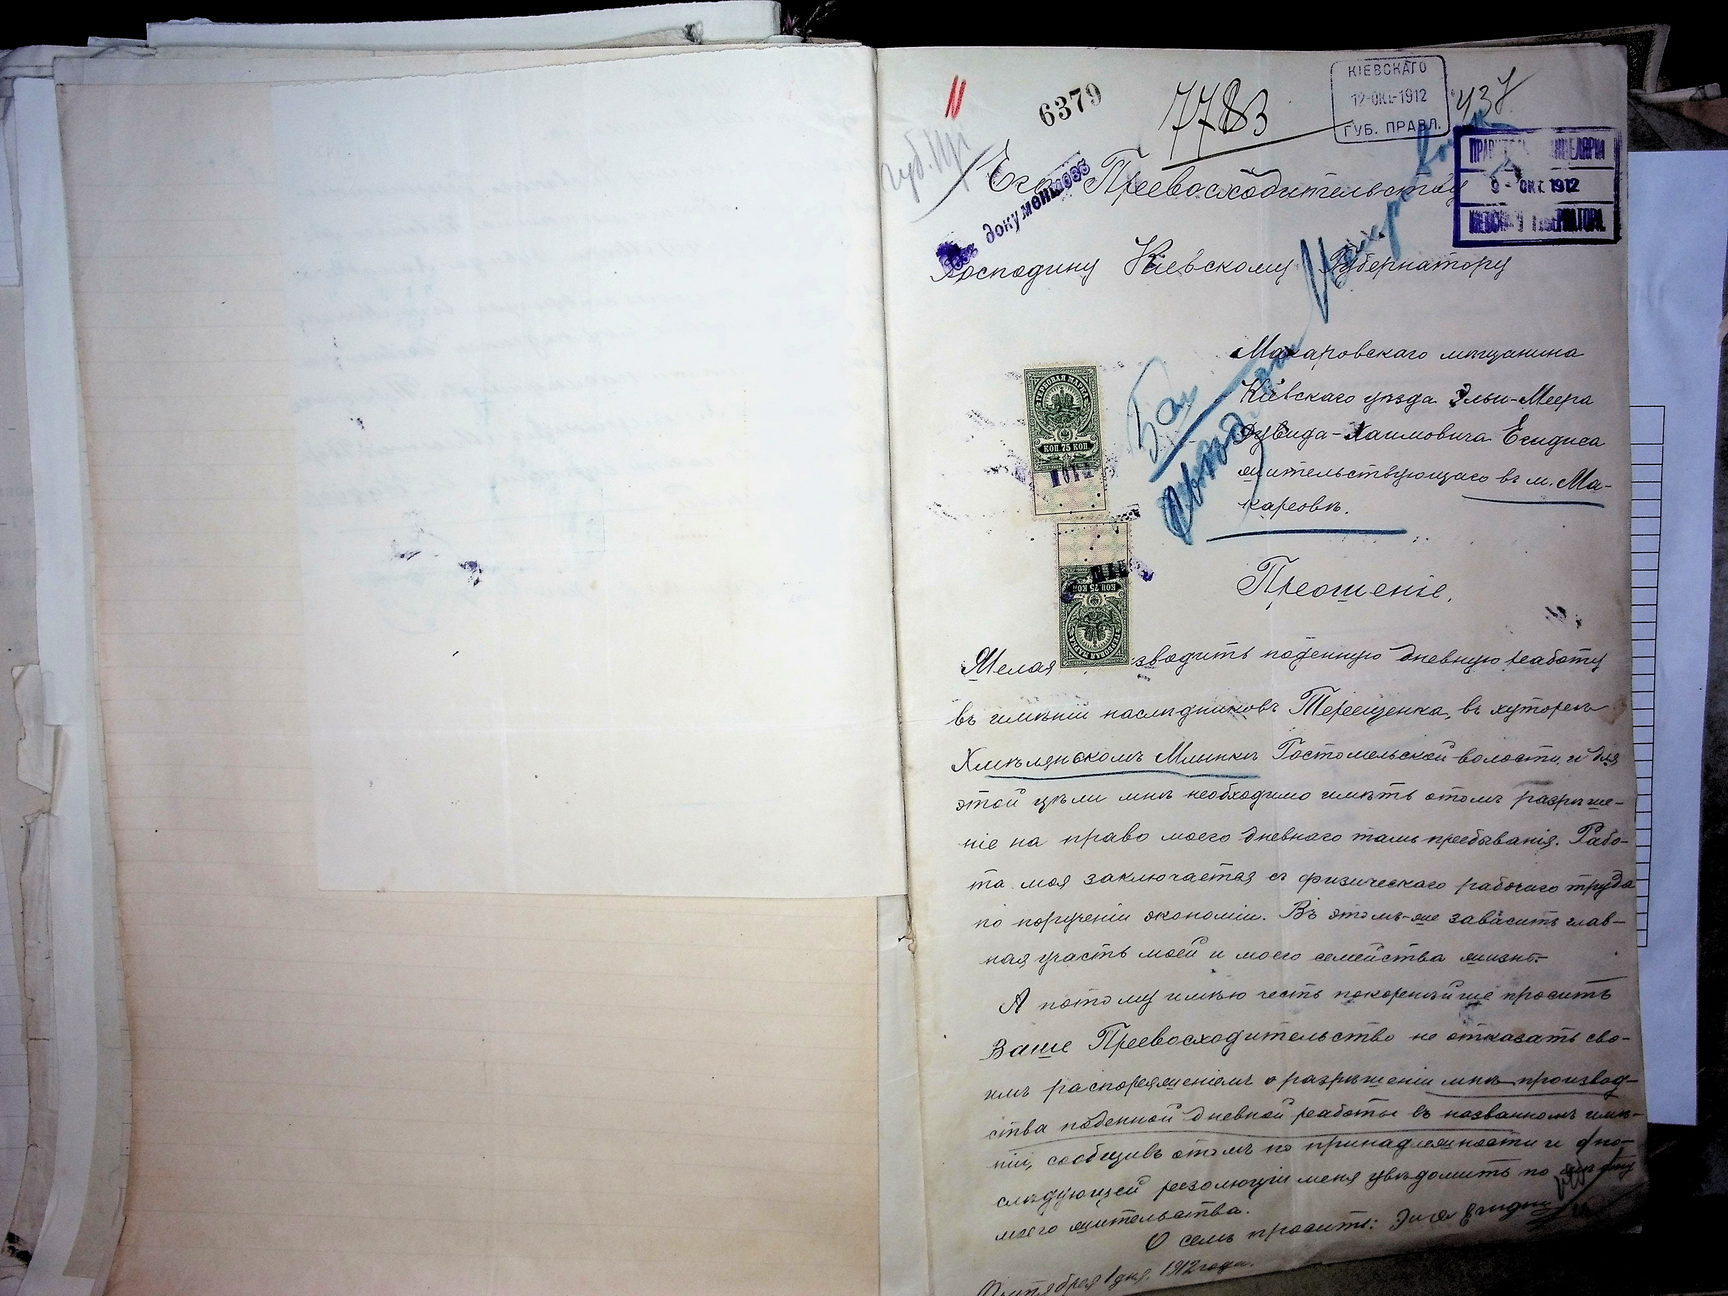 11
6379
7783
КІЕВСКАГО
12-ОКТ-1912
ГУБ. ПРАВЛ.
437
ПРАВИТЕЛЬ КАНЦЕЛЯРІИ
9 - ОКТ. 1912
КІЕВСКАГО ГУБЕРНАТОРА.
Его Превосходительству
Безъ документовъ
Господину Кіевскому Губернатору
Макаровскаго мѣщанина
Кіевскаго уѣзда Эльи-Меера
Дувида-Хаимовича Егидиса
жительствующаго въ м. Ма-
каровѣ.
ГЕРБОВАЯ МАРКА
КОП. 75 КОП.
КОП. 75 КОП.
ГЕРБОВАЯ МАРКА
Прошеніе.
Желая зводить поденную дневную работу
въ имѣніи наслѣдниковъ Терещенка, въ хуторѣ
Хмѣлянскомъ Млынкѣ Гостомельской волости, и для
этой цѣли мнѣ необходимо имѣть отомъ разрѣше-
ніе на право моего дневнаго тамъ пребыванія. Рабо-
та моя заключается съ физическаго рабочаго труда
по порученіи экономіи. Въ этомъ-же зависитъ глав-
ная участь моей и моего семейства жизнь.
А потому имѣю честь покорнѣйше просить
Ваше Превосходительство не отказать сво-
имъ распоряженіемъ о разрѣшеніи мнѣ производ-
ства поденной дневной работы въ названномъ имѣ-
ніи, сообщивъ отомъ по принадлежности и о по-
слѣдующей резолюціи меня увѣдомить по мѣсту
моего жительства.
О семъ проситъ: Эль Егидис
Октября 1 дня 1912 года.